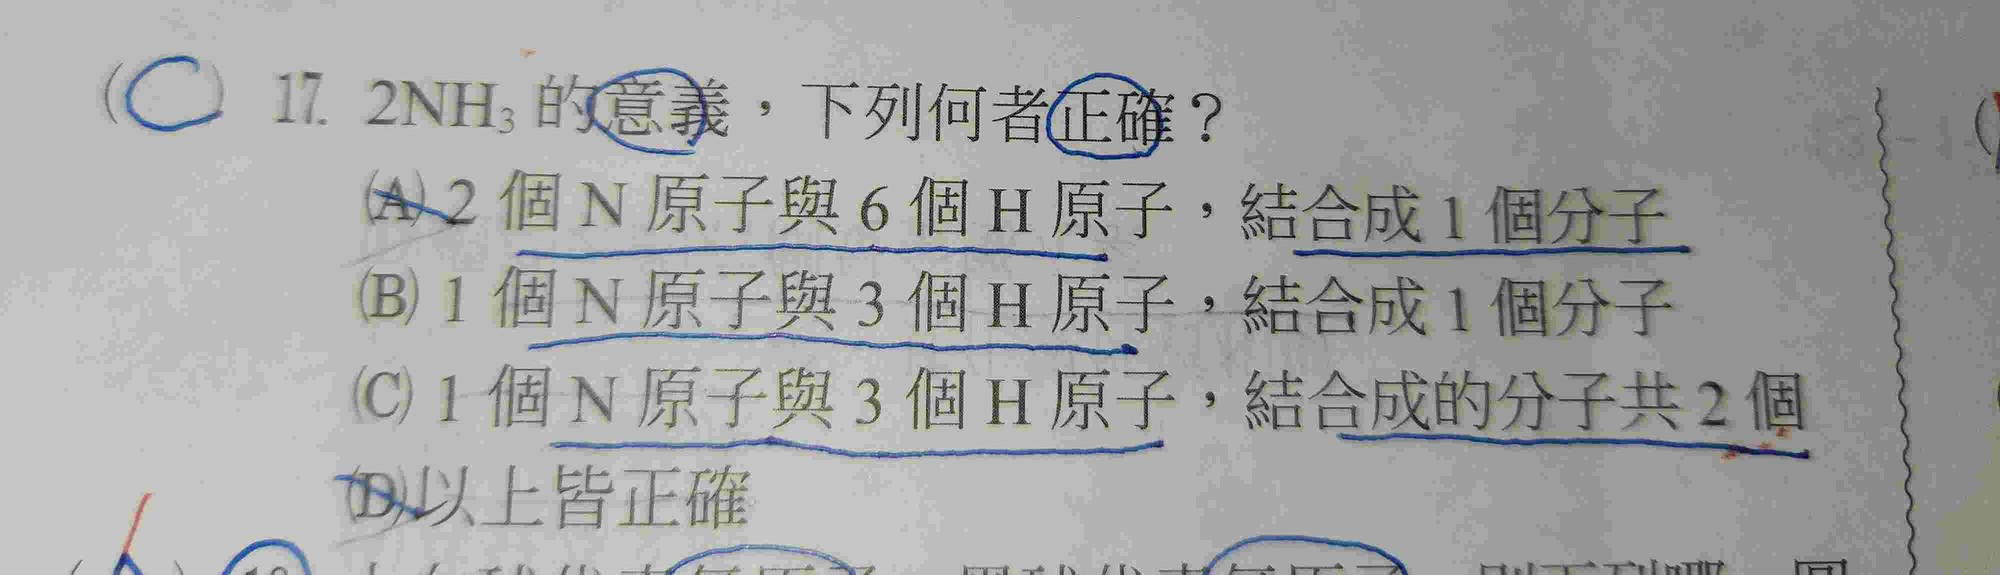 (C) 17. 2NH₃ 的意義，下列何者正確？
(A) 2 個 N 原子與 6 個 H 原子，結合成 1 個分子
(B) 1 個 N 原子與 3 個 H 原子，結合成 1 個分子
(C) 1 個 N 原子與 3 個 H 原子，結合成的分子共 2 個
(D) 以上皆正確